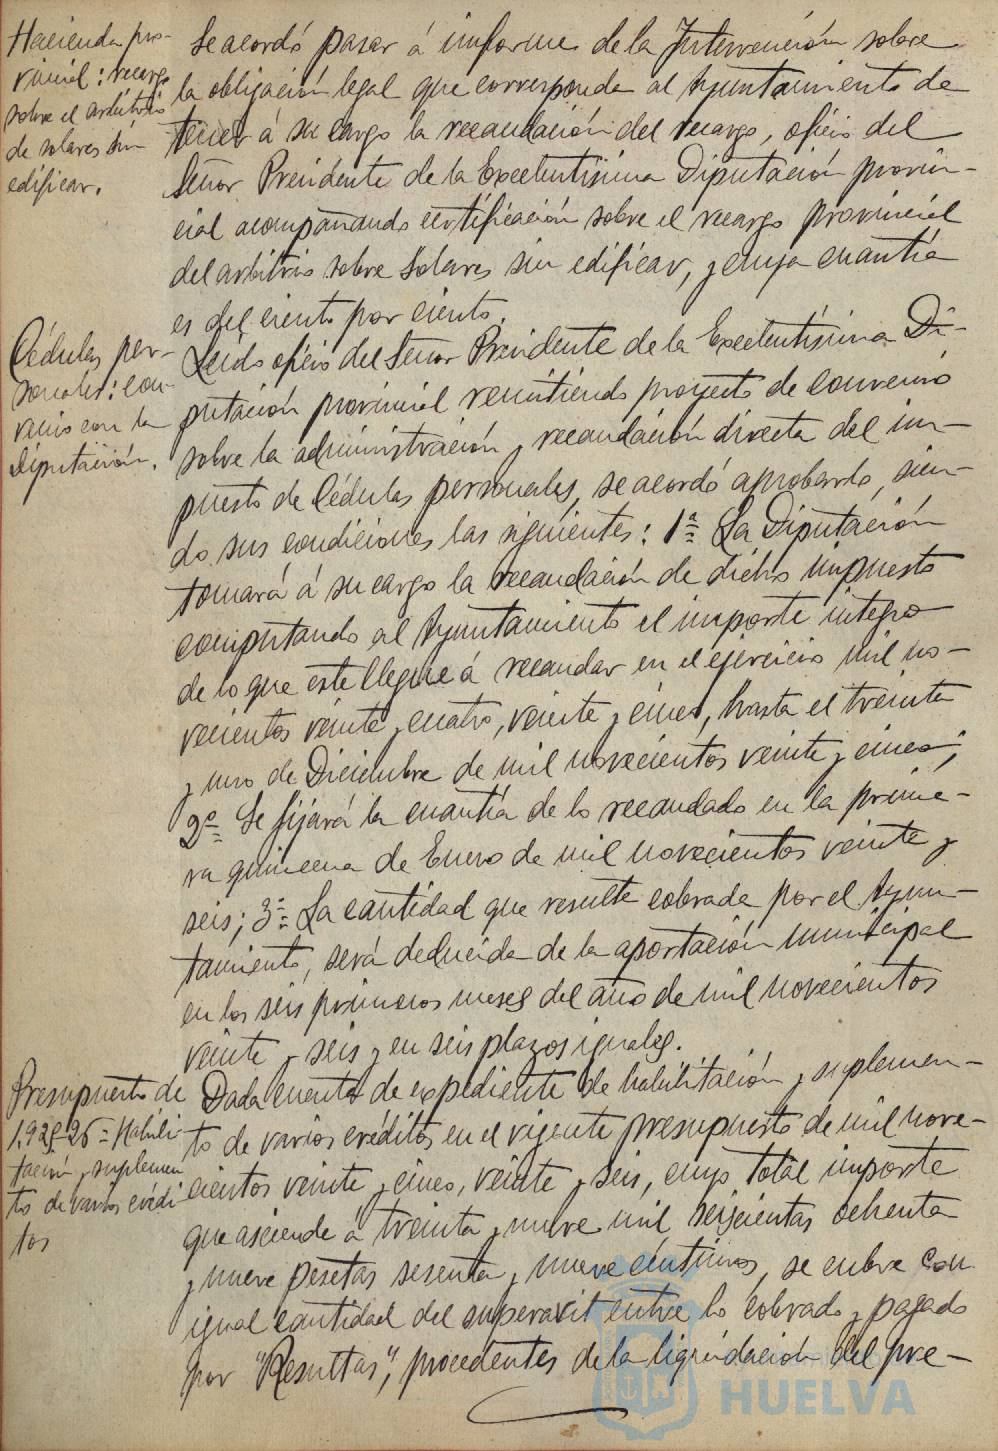 Hacienda pro-
vincial: recargo
sobre el arbitrio
de solares sin
edificar.
Se acordó pasar á informe de la Intervención sobre
la obligación legal que corresponda al Ayuntamiento de
tener á su cargo la recaudación del recargo, oficio del
Señor Presidente de la Excelentísima Diputación provin-
cial acompañando certificación sobre el recargo provincial
del arbitrio sobre Solares sin edificar, y cuya cuantía
es del ciento por ciento.
Cédulas per-
sonales: con-
venio con la
Diputación.
Leido oficio del Señor Presidente de la Excelentísima Di-
putación provincial remitiendo proyecto de convenio
sobre la administración y recaudación directa del im-
puesto de Cédulas personales, se acordó aprobarlo, sien-
do sus condiciones las siguientes: 1ª La Diputación
tomará á su cargo la recaudación de dicho impuesto
computando al Ayuntamiento el importe integro
de lo que este llegue á recaudar en el ejercicio mil no-
vecientos veinte y cuatro, veinte y cinco, hasta el treinta
y uno de Diciembre de mil novecientos veinte y cinco;
2ª Se fijará la cuantía de lo recaudado en la prime-
ra quincena de Enero de mil novecientos veinte y
seis; 3ª La cantidad que resulte cobrada por el Ayun-
tamiento, será deducida de la aportación municipal
en los seis primeros meses del año de mil novecientos
veinte y seis y en seis plazos iguales.
Presupuesto de
1.925-26 = Habili-
tación y suplemen
to de varios crédi
tos
Dada cuenta de expediente de habilitación y suplemen-
to de varios créditos en el vigente presupuesto de mil nove-
cientos veinte y cinco, veinte y seis, cuyo total importe
que asciende á treinta y nueve mil seiscientas ochenta
y nueve pesetas sesenta y nueve céntimos, se cubre con
igual cantidad del superavit entre lo cobrado y pagado
por "Resultas", procedentes de la liquidación del pre-
HUELVA